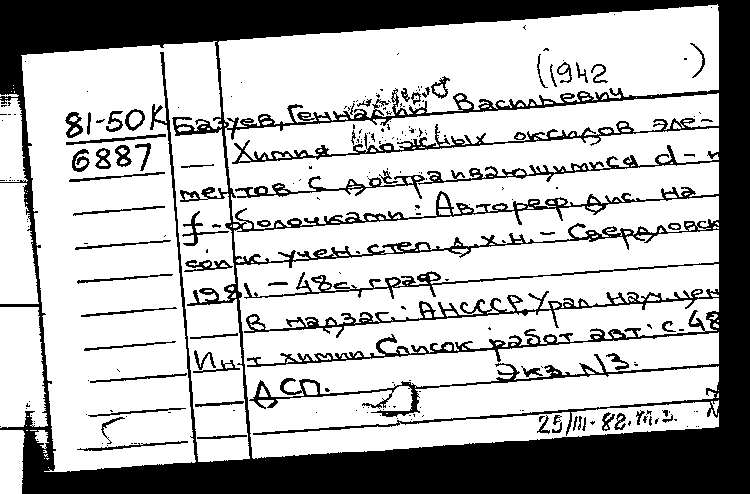 (1942 )
81-50К Базуев, Геннадий Васильевич.
6887 — Химия сложных оксидов эле-
ментов с достраивающимися d- и
f-оболочками: Автореф. дис. на
соиск. учен. степ. д.х.н. - Свердловск
1981. - 48с., граф.
В надзаг.: АН СССР, Урал. науч. цен
Ин-т химии. Список работ авт.: с. 48
ДСП. Экз. N3.
25/III-82.